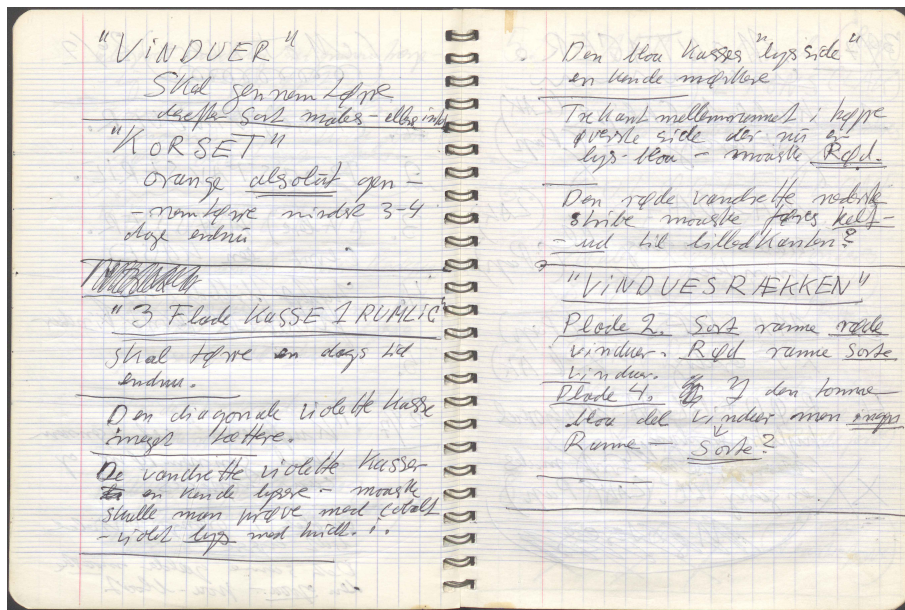 "VINDUER"
Skal gennem tørre
derefter Sort males - ellers intet
"KORSET"
orange absolut gen-
- nem tørre mindst 3-4
dage endnu
"3 Flade KASSE 1 RUMLIG"
skal tørre en dags tid
endnu.
Den diagonale violette Kasse
meget tættere.
De vandrette violette Kasser
en kende lysere - maaske
skulle man prøve med Cobolt
- violet lys med hvidt. i.
Den blaa Kasses "lys side"
en kende mørkere
Trekant mellemrummet i høppe
øverste side der nu er
lys-blaa - maaske Rød.
Den røde vandrette nederste
stribe maaske føres helt-
- ud til billedkanten?
"VINDUESRÆKKEN"
Plade 2. Sort ramme røde
vinduer. Rød ramme Sorte
vinduer.
Plade 4. I den tomme
blaa del vinduer men ingen
Ramme - Sorte?